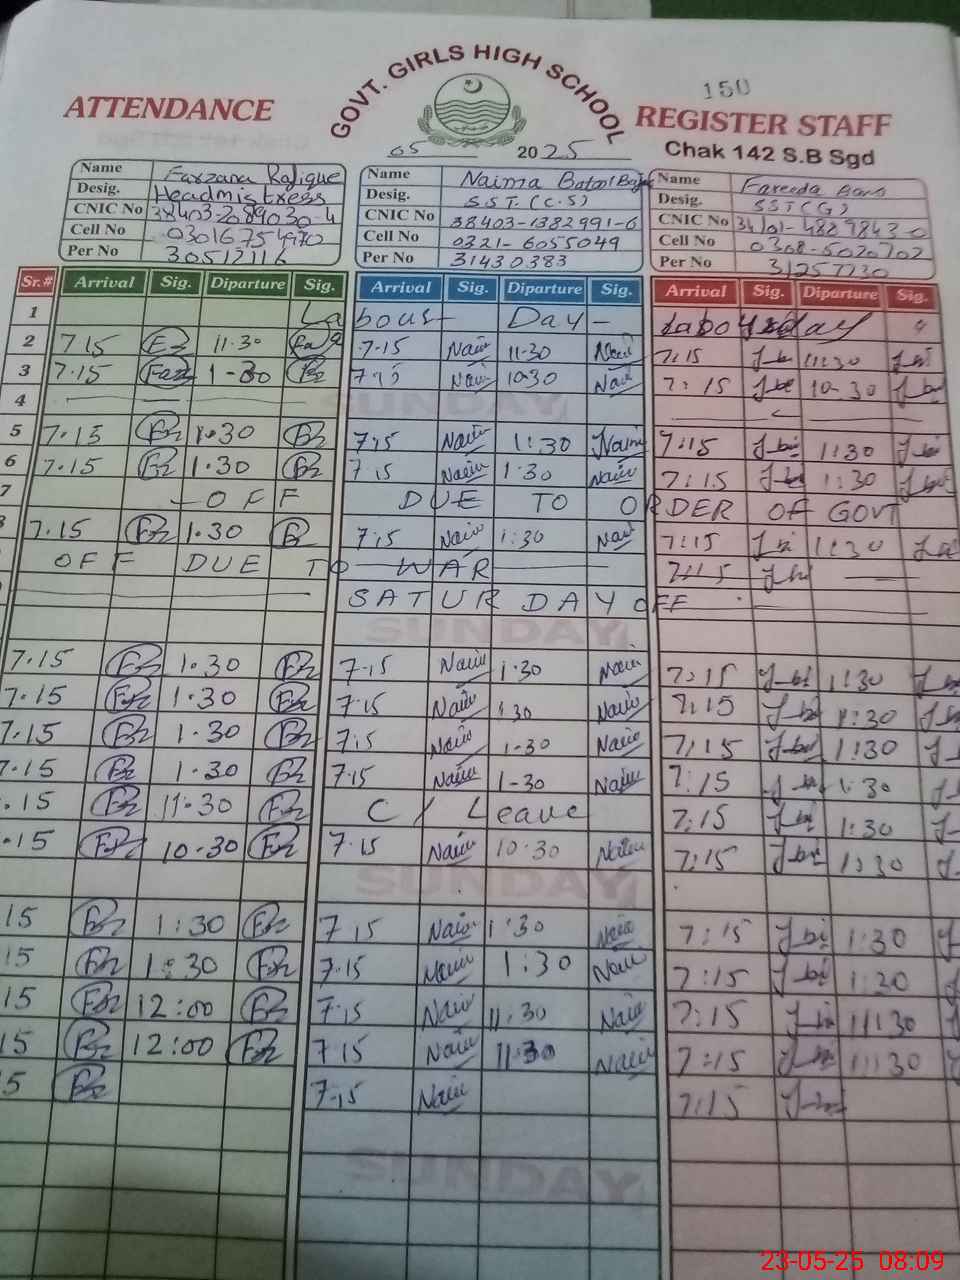 150
ATTENDANCE GOVT. GIRLS HIGH SCHOOL REGISTER STAFF
05 2025 Chak 142 S.B Sgd
Name Farzana Rafique Name Naima Batool Name Fareeda
Desig. Headmistress Desig. SST (C.S) Desig. SST(G)
CNIC No CNIC No 38403-1382991-6 CNIC No
Cell No Cell No 0321-6055049 Cell No 0308-5020702
Per No 30512116 Per No 31430383 Per No 31257730
Sr.# Arrival Sig. Diparture Sig. Arrival Sig. Diparture Sig. Arrival Sig. Diparture Sig.
1 Labour Day - Labour day
2 7.15 11.30 7.15 Naim 11.30 Naim 7:15 11:30
3 7.15 1-30 7.15 Naim 10.30 Naim 7:15 10-30
4 SUNDAY
5 7.15 1.30 7:15 Naim 1:30 Naim 7:15 1:30
6 7.15 1.30 7.15 Naim 1.30 Naim 7:15 1:30
7 - OFF DUE TO ORDER OF GOVT
8 7.15 1.30 7.15 Naim 1:30 Naim 7:15 11:30
OFF DUE TO WAR 7:15
SATURDAY OFF
SUNDAY
7.15 1.30 7.15 Naim 1.30 Naim 7:15 1:30
7.15 1.30 7.15 Naim 1.30 Naim 7:15 1:30
7.15 1.30 7.15 Naim 1-30 Naim 7:15 1:30
7.15 1.30 7.15 Naim 1-30 Naim 7:15 1:30
.15 11.30 C/Leave 7:15 1:30
.15 10.30 7.15 Naim 10:30 Naim 7:15 1:30
SUNDAY
15 1:30 7.15 Naim 1:30 Naim 7:15 1:30
15 1:30 7.15 Naim 1:30 Naim 7:15 1:20
15 12:00 7.15 Naim 11:30 Naim 7:15 11:30
15 12:00 7.15 Naim 11.30 Naim 7:15 11:30
5 7.15 Naim 7:15
SUNDAY
23-05-25 08:09